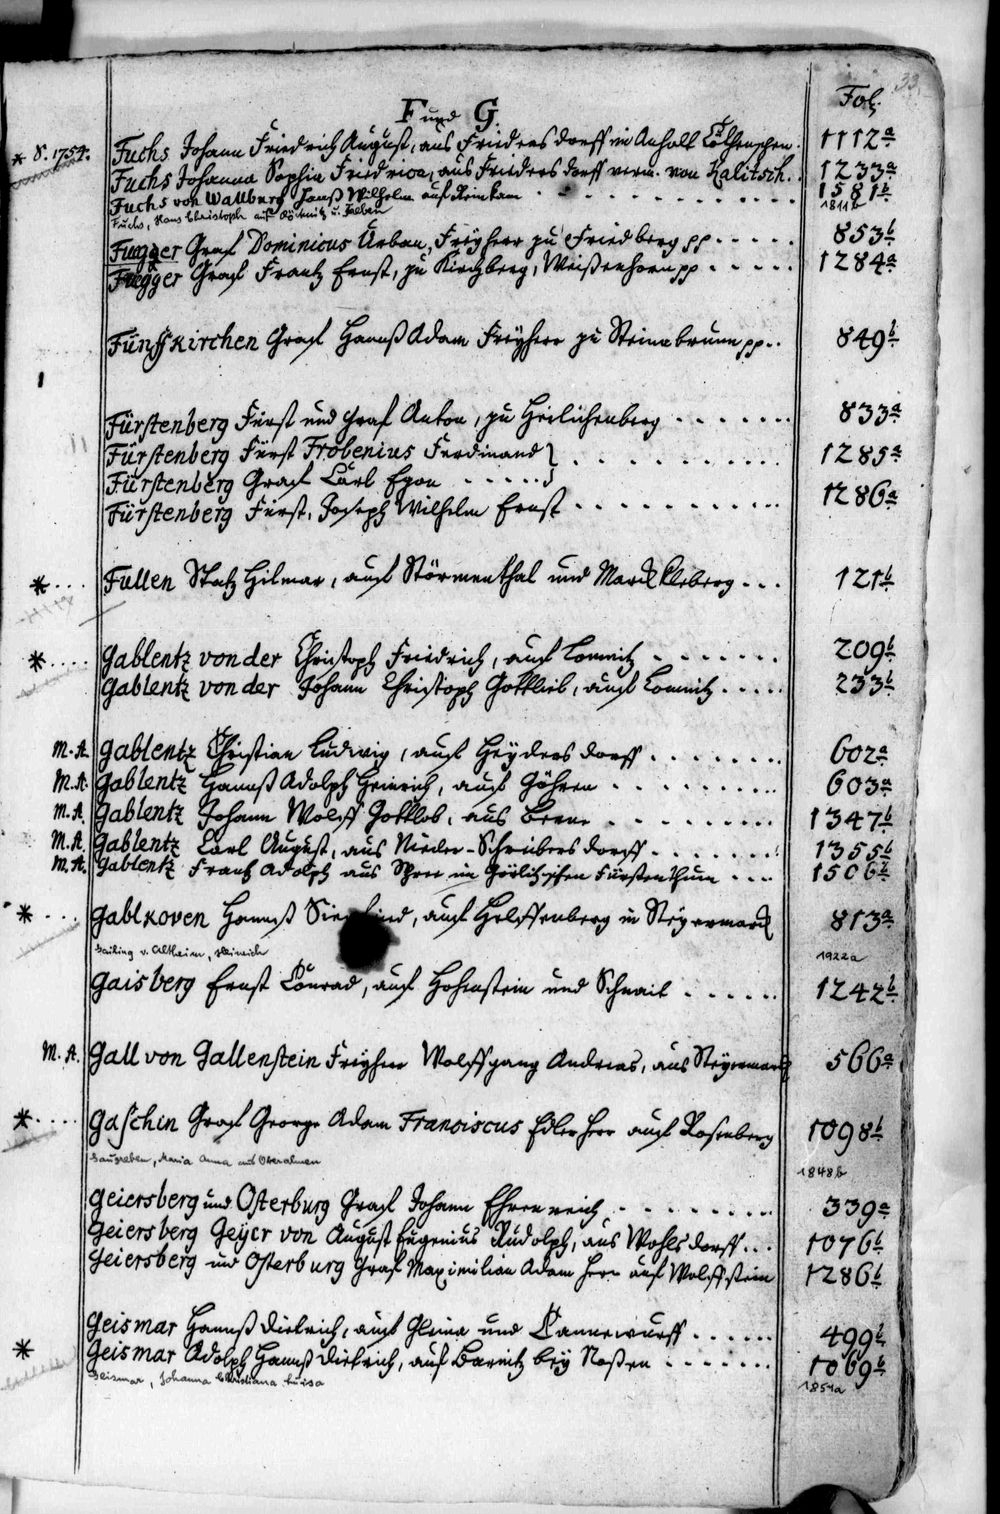 33
F und G.
Fol:
* S. 1754. Fuchs Johann Friedrich August, aus Friedersdorff in Anhalt Cöthenschen. 1112a
Fuchs Johanna Sophia Friedrica, aus Friedersdorff verm. von Kalitsch. 1233a
Fuchs von Wallburg Hanß Wilhelm auf Reinkam 1581b
Fuchs, Hans Christoph auf u. 1811b
Fugger Graf Dominicus Urban, Freyherr zu Friedberg pp 853b
Fugger Graf Frantz Ernst, zu Kirchberg, Weißenhorn pp 1284a
Fünffkirchen Graf Hannß Adam Freyherr zu Steinabrunn pp. 849b
Fürstenberg Fürst und Graf Anton, zu Heilichenberg 833a
Fürstenberg Fürst Frobenius Ferdinand } 1285a
Fürstenberg Graf Carl Egon }
Fürstenberg Fürst, Joseph Wilhelm Ernst 1286a
* Fullen Statz Hilmar, auf Störmenthal und Marckkleberg 121b
* Gablentz von der Christoph Friedrich, auf Lomnitz 209b
Gablentz von der Johann Christoph Gottlieb, auf Lomnitz 233b
M. A. Gablentz Christian Ludwig, auf Heydersdorff 602a
M. A. Gablentz Hannß Adolph Heinrich, auf Göhren 603a
M. A. Gablentz Johann Wolff Gottlob, aus 1347b
M. A. Gablentz Carl August, aus Nieder-Schreibersdorff 1355b
M. A. Gablentz Frantz Adolph aus Spree im Görlitzischen Fürstenthum 1506b
* Gablkoven Hannß, auf Helffenberg in Steyermarck 813a
Gailing v. Altheim, Heinrich 1922a
Gaisberg Ernst Conrad, auf Hohenstein und Schnait 1242b
M. A. Gall von Gallenstein Freyherr Wolffgang Andreas, aus Steyermarck 566a
* Gaschin Graf George Adam Franciscus Edler Herr auf Rosenberg 1098b
Gaugreben, Maria Anna aus Oberalmen 1848b
Geiersberg und Osterburg Graf Johann Ehrenreich 339a
Geiersberg Geyer von August Eugenius Rudolph, aus Wohlsdorff 1076b
Geiersberg und Osterburg Graf Maximilian Adam Herr auf Wolffstein 1286b
Geismar Hannß Dietrich, auf Gleina und Cannewurff 499b
* Geismar Adolph Hannß Dietrich, auf Barnitz bey Noßen 1069b
Geismar, Johanna Christiana Luisa 1854a